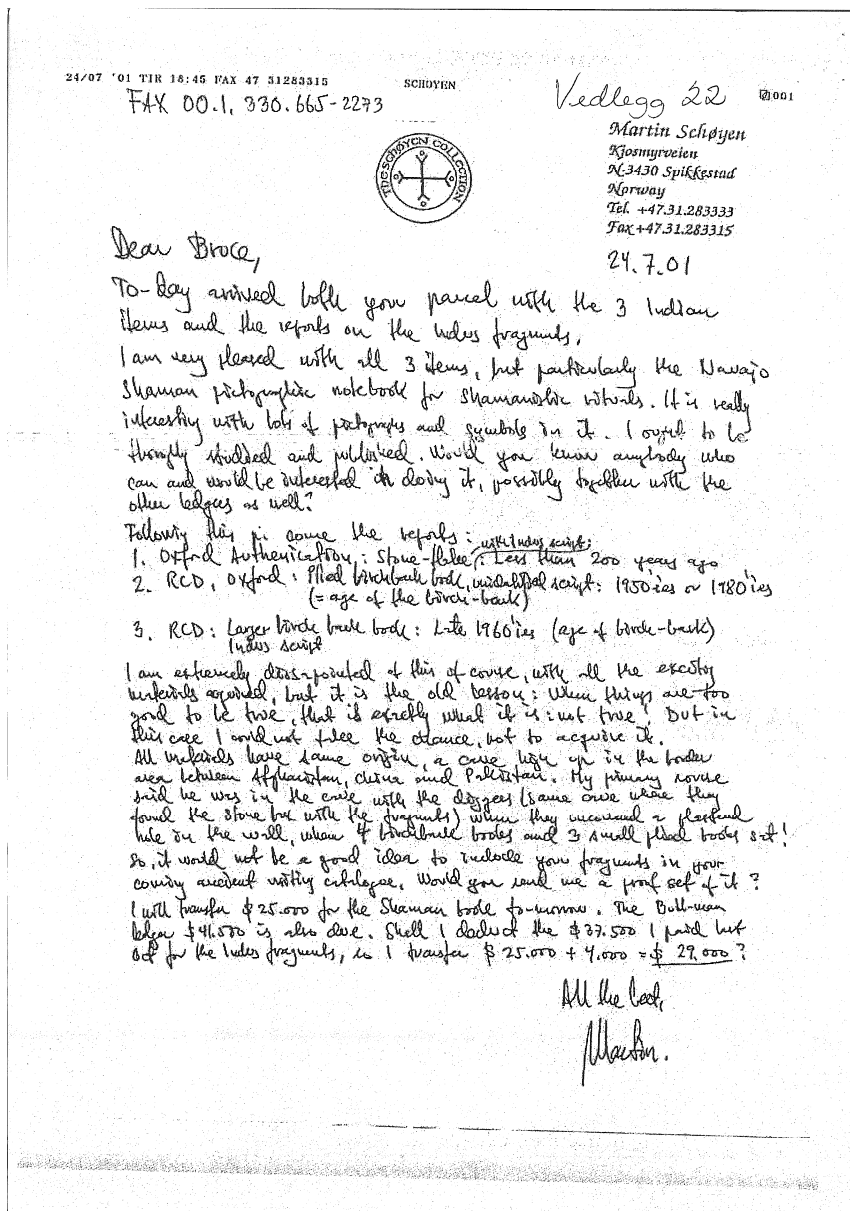 24/07 '01 TIR 18:45 FAX 47 31283315 SCHOYEN 001
FAX 00.1. 330.665-2273
Vedlegg 22
THE SCHØYEN COLLECTION
Martin Schøyen
Kjosmyrveien
N-3430 Spikkestad
Norway
Tel. +47.31.283333
Fax +47.31.283315
24.7.01
Dear Bruce,
To-day arrived both your parcel with the 3 Indian
items and the reports on the Indus fragments.
I am very pleased with all 3 items, but particularly the Navajo
Shaman pictographic notebook for Shamanistic rituals. It is really
interesting with lots of pictographs and symbols in it. I ought to be
throughly studied and published. Would you know anybody who
can and would be interested in doing it, possibly together with the
other ledgers as well?
Following this come the reports:
1. Oxford Authenication: Stone-flake with Indus script: Less than 200 years ago
2. RCD, Oxford: Plied birchbark book, unidentified script: 1950'ies or 1980'ies
(= age of the birch-bark)
3. RCD: Larger birch bark book: Late 1960'ies (age of birch-bark)
Indus script
I am extremely dissapointed of this of course, with all the exciting
materials acquired, but it is the old lesson: When things are too
good to be true, that is exactly what it is: not true! But in
this case I could not take the chance, not to acquire it.
All materials have same origin, a cave high up in the border
area between Afghanistan, China and Pakistan. My primary source
said he was in the cave with the diggers (same cave where they
found the stone box with the fragments) when they uncovered a plastered
hole in the wall, where 4 birchbark books and 3 small plied books sat!
So, it would not be a good idea to include your fragments in your
coming ancient writing catalogue. Would you send me a proof set of it?
I will transfer $ 25.000 for the Shaman book to-morrow. The Bull-man
ledger $ 41.500 is also due. Shall I deduct the $ 37.500 I paid last
Oct for the Indus fragments, so I transfer $ 25.000 + 4.000 = $ 29.000?
All the best,
Martin.